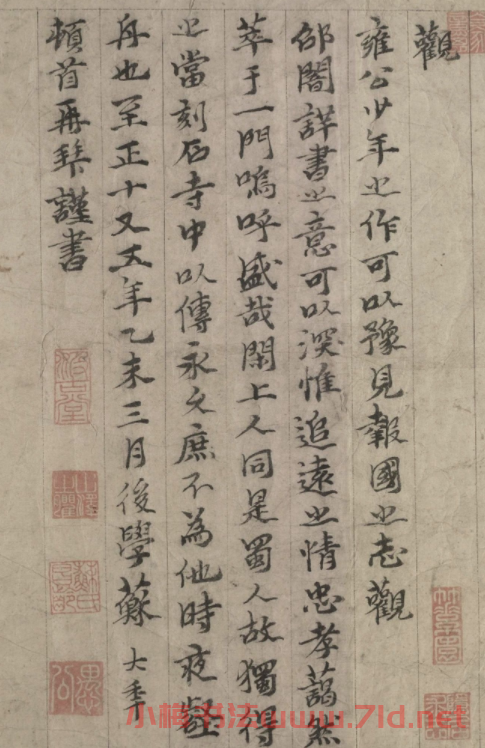 觀
雍公少年之作可以豫見報國之志觀
邵闇詳書之意可以深惟追遠之情忠孝藹然
萃于一門嗚呼盛哉閑上人同是蜀人故獨得
之當刻石寺中以傳永久庶不為他時夜壑
舟也至正十又五年乙未三月後學蘇大年
頓首再拜謹書
小楷书法www.7ld.net